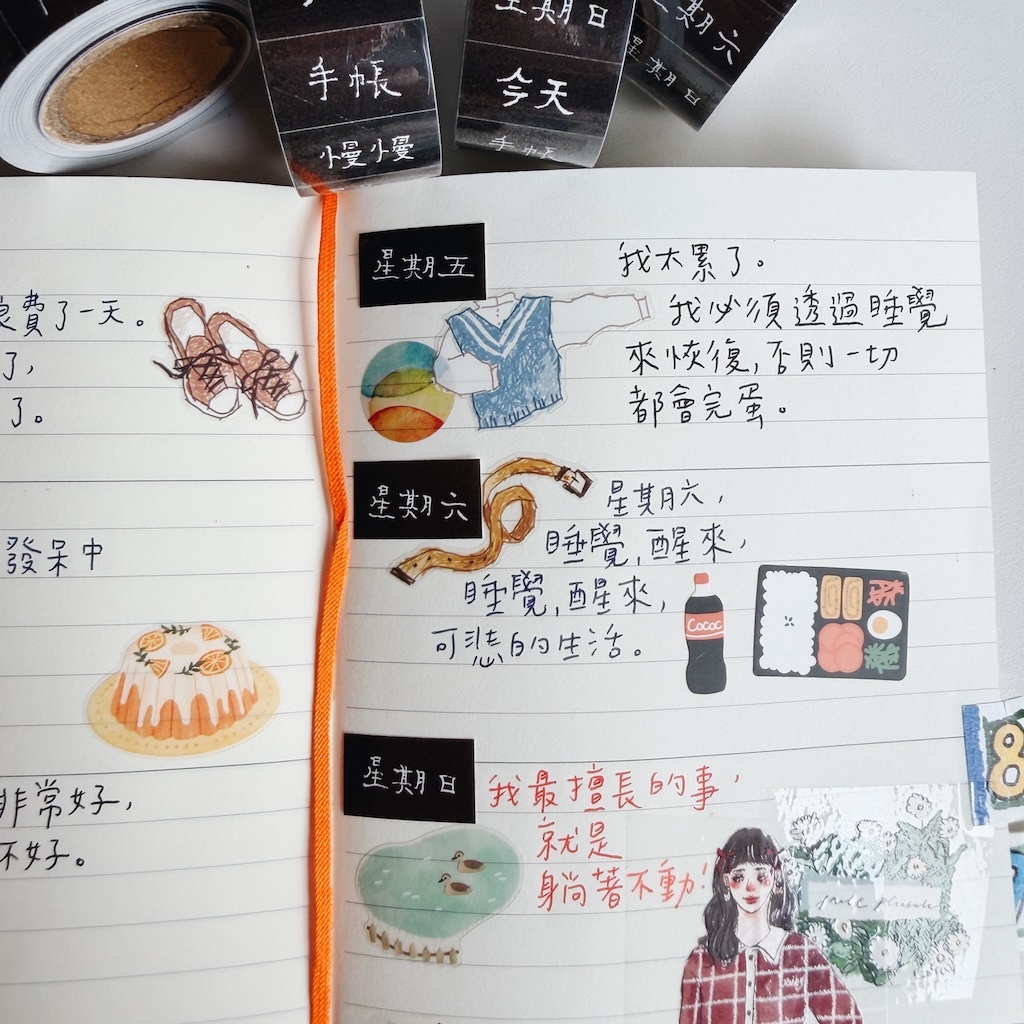 星期日
手帳
慢慢
今天
手帳
星期六
星期日
浪費了一天。
了,
了。
發呆中
非常好,
不好。
星期五
我太累了。
我必須透過睡覺
來恢復,否則一切
都會完蛋。
星期六
星期六,
睡覺,醒來,
睡覺,醒來,
可悲的生活。
Cococ
星期日
我最擅長的事,
就是
躺著不動!
8